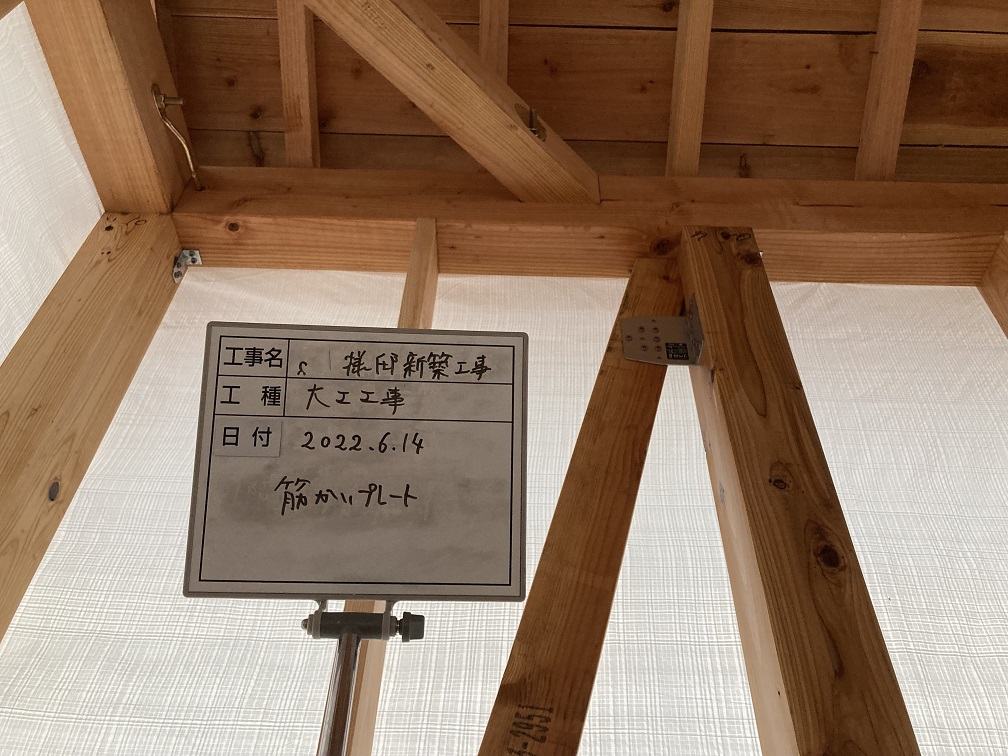 工事名 S 様邸新築工事
工種 大工工事
日付 2022.6.14
筋かいプレート
-2951